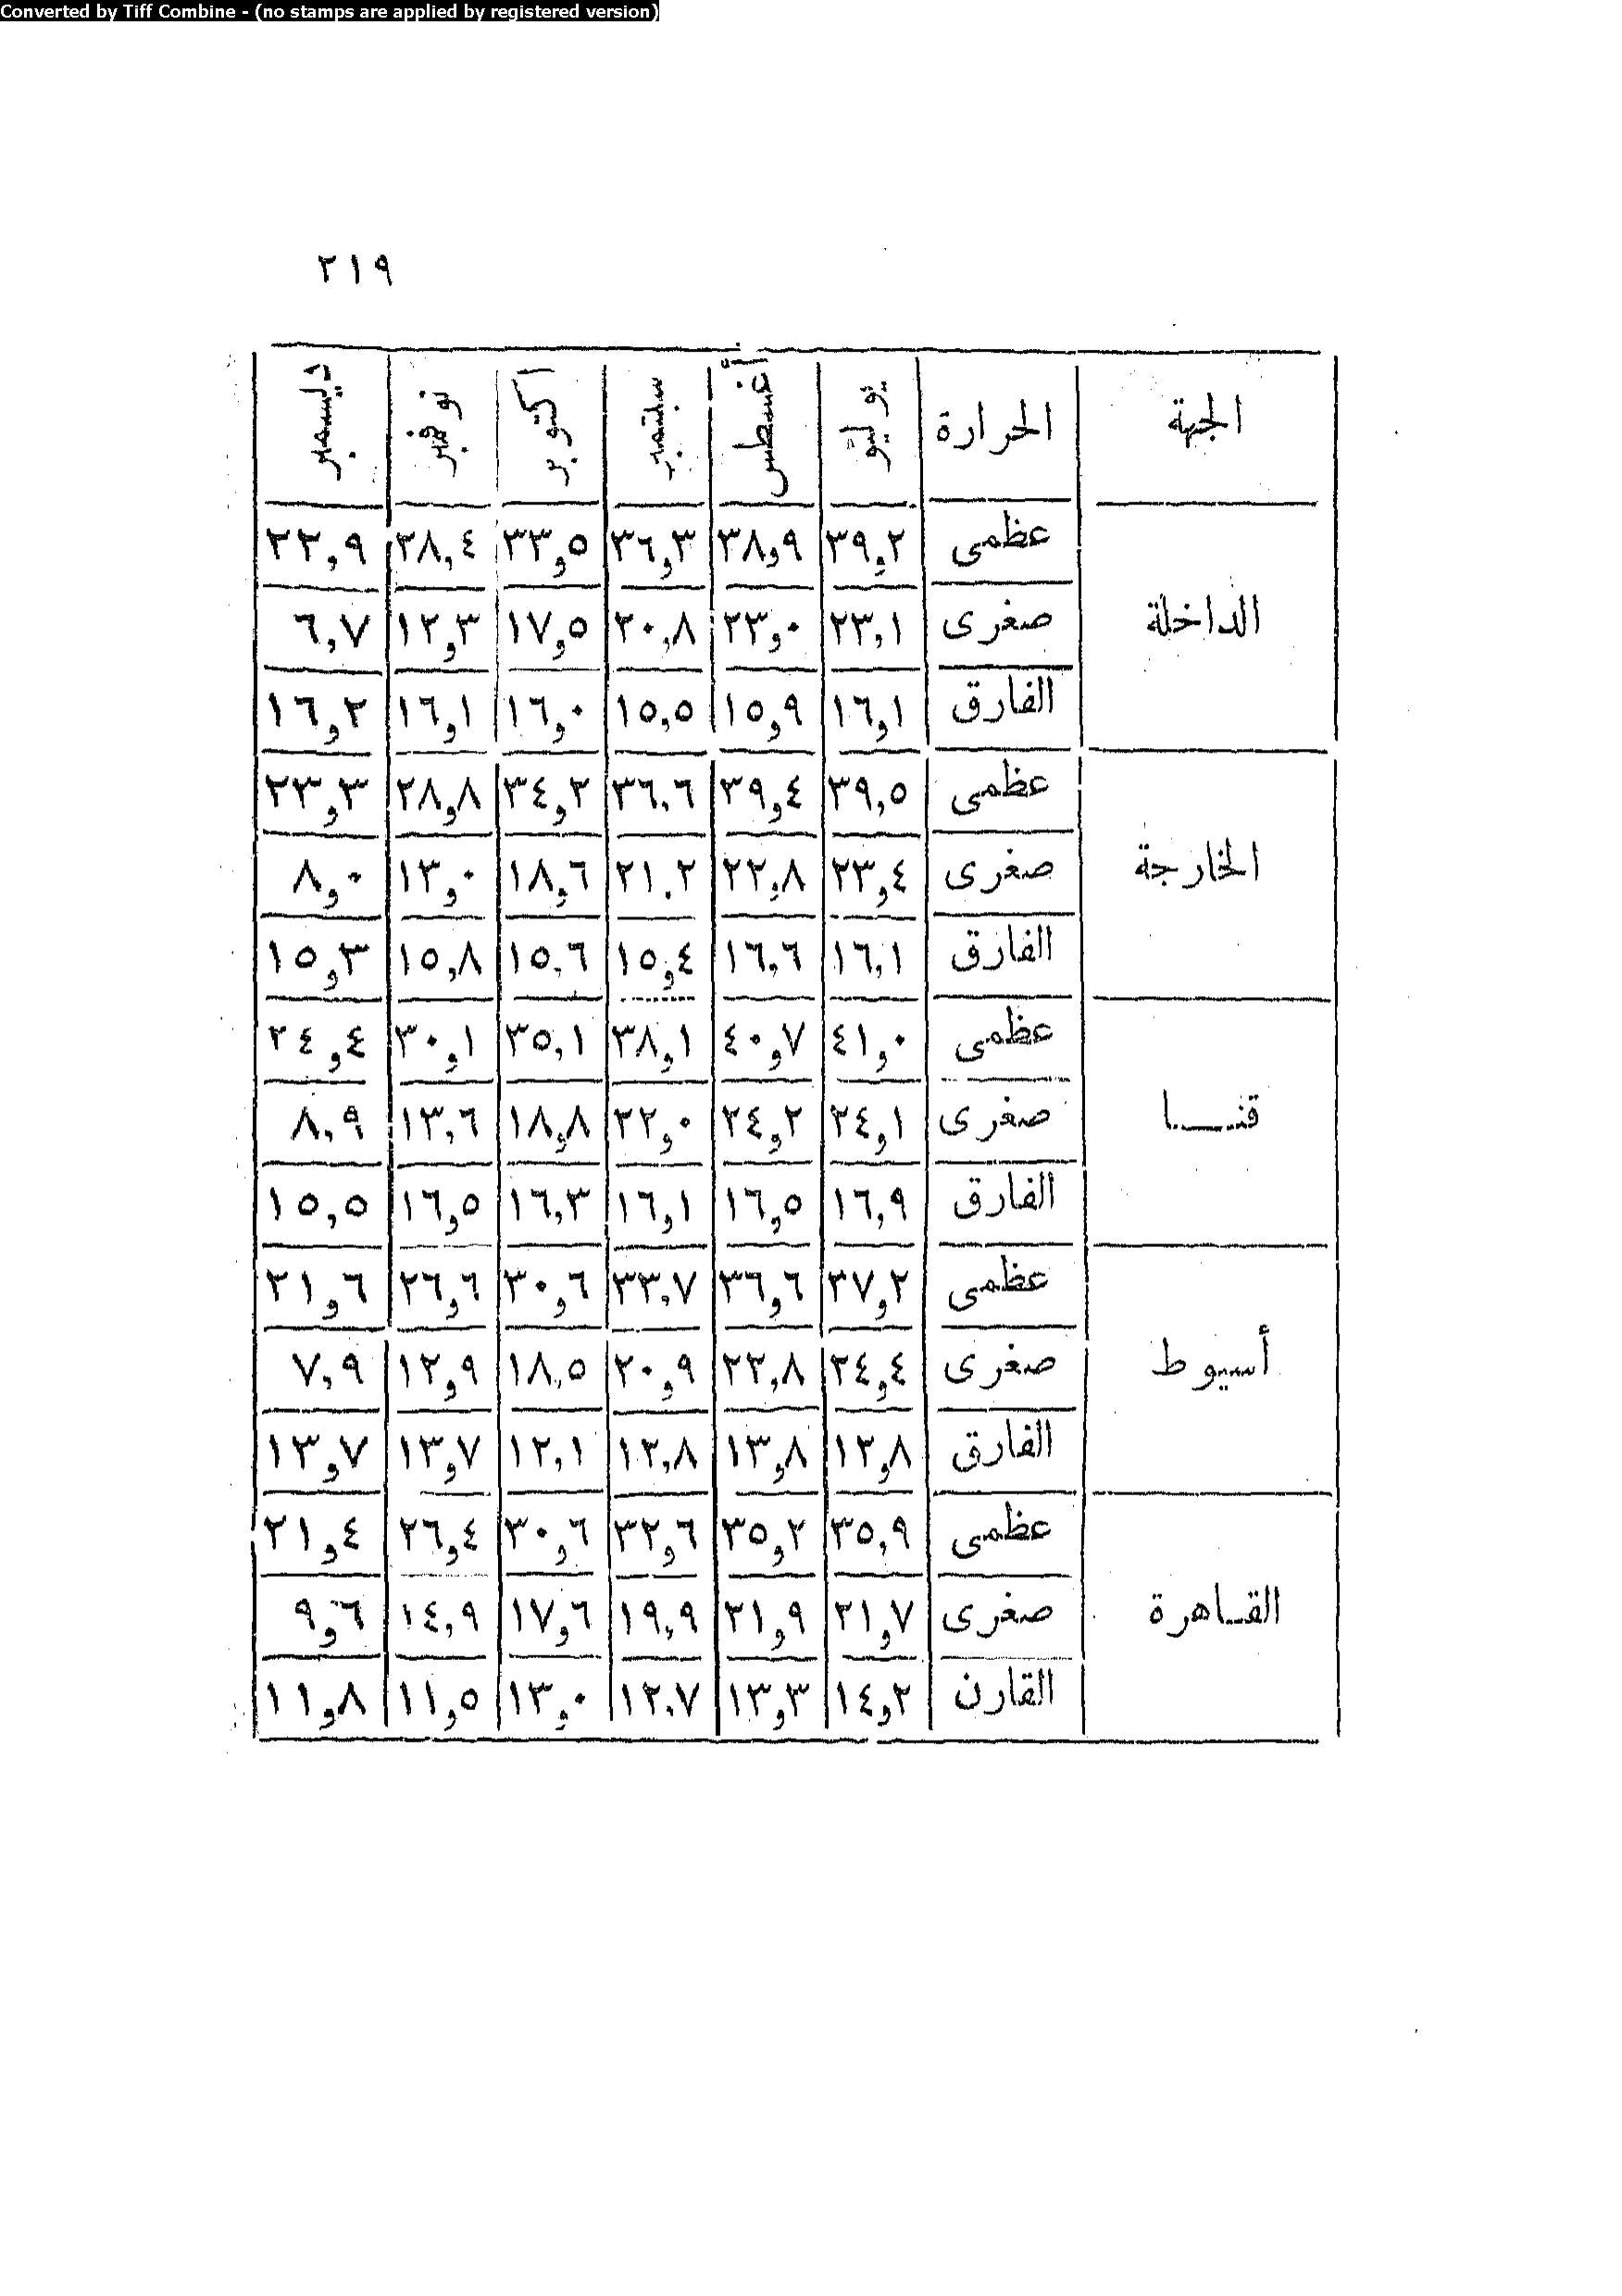 Converted by Tiff Combine - (no stamps are applied by registered version)
٢١٩
الجهة الحرارة يوليو أغسطس سبتمبر اكتوبر نوفمبر ديسمبر
الداخلة
عظمى ٣٩,٢ ٣٨,٩ ٣٦,٣ ٣٣,٥ ٢٨,٤ ٢٢,٩
صغرى ٢٣,١ ٢٣,٠ ٢٠,٨ ١٧,٥ ١٢,٣ ٦,٧
الفارق ١٦,١ ١٥,٩ ١٥,٥ ١٦,٠ ١٦,١ ١٦,٢
الخارجة
عظمى ٣٩,٥ ٣٩,٤ ٣٦,٦ ٣٤,٢ ٢٨,٨ ٢٣,٣
صغرى ٢٣,٤ ٢٢,٨ ٢١,٢ ١٨,٦ ١٣,٠ ٨,٠
الفارق ١٦,١ ١٦,٦ ١٥,٤ ١٥,٦ ١٥,٨ ١٥,٣
قنــا
عظمى ٤١,٠ ٤٠,٧ ٣٨,١ ٣٥,١ ٣٠,١ ٢٤,٤
صغرى ٢٤,١ ٢٤,٢ ٢٢,٠ ١٨,٨ ١٣,٦ ٨,٩
الفارق ١٦,٩ ١٦,٥ ١٦,١ ١٦,٣ ١٦,٥ ١٥,٥
أسيوط
عظمى ٣٧,٢ ٣٦,٦ ٣٣,٧ ٣٠,٦ ٢٦,٦ ٢١,٦
صغرى ٢٤,٤ ٢٢,٨ ٢٠,٩ ١٨,٥ ١٢,٩ ٧,٩
الفارق ١٢,٨ ١٣,٨ ١٢,٨ ١٢,١ ١٣,٧ ١٣,٧
القــاهرة
عظمى ٣٥,٩ ٣٥,٢ ٣٢,٦ ٣٠,٦ ٢٦,٤ ٢١,٤
صغرى ٢١,٧ ٢١,٩ ١٩,٩ ١٧,٦ ١٤,٩ ٩,٦
القارن ١٤,٢ ١٣,٣ ١٢,٧ ١٣,٠ ١١,٥ ١١,٨